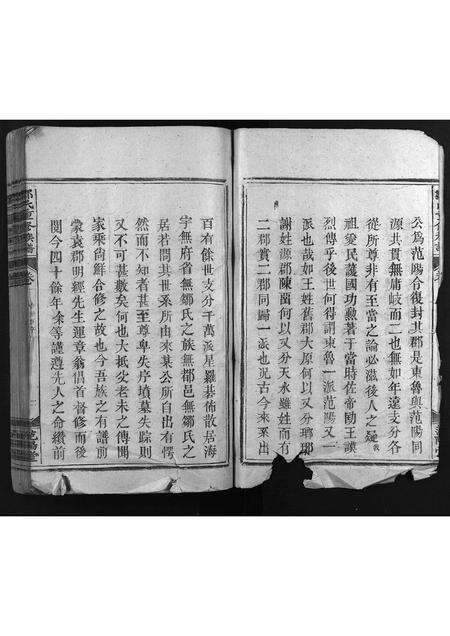 公爲范陽令復封其郡是東魯與范陽同
源共貫無庸岐而二也無如年遠支分各
從所尊非有至當之論必滋後人之疑我
祖愛民護國功勲著于當時佐帝勷王謨
烈傳乎後世何得謂東魯一派范陽又一
派也哉如王姓舊郡大原何以又分瑯琊
謝姓源郡陳留何以又分天水雖姓而有
二郡實二郡同歸一派也況古今來系出
百有餘世支分千萬派星羅碁佈散居海
宇無府省無鄒氏之族無都邑無鄒氏之
居若問其世系所由來某公所自出有愕
然而不知者甚至尊卑失序墳墓失踪則
又不可甚數矣何也大抵父老未之傳聞
家乘尙鮮合修之故也今吾族之有譜前
蒙袁郡明經先生運章翁倡首督修而後
閱今四十餘年余等謹遵先人之命纘前